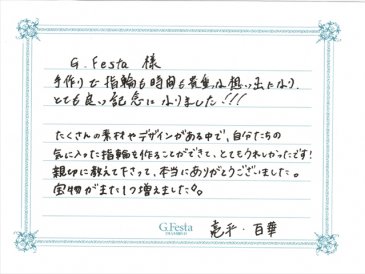 G.Festa 様
手作りで指輪も時間も貴重な想い出になり、
とても良い記念になりました!!!
たくさんの素材やデザインがある中で、自分たちの
気に入った指輪を作ることができて、とてもうれしかったです!
親切に教えて下さって、本当にありがとうございました。
宝物がまた1つ増えました。
G.Festa
亮平・百華